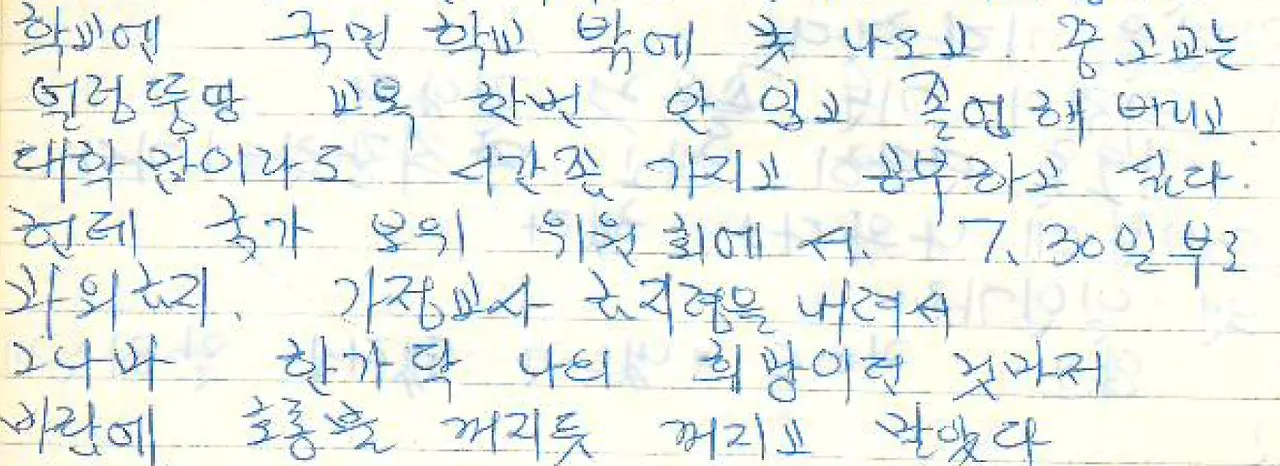 학교엔 국민 학교 밖에 못 나오고. 중.고교는
얼렁뚱땅 교육 한번 안 입고 졸업해 버리고
대학 만이라도 시간좀 가지고 공부하고 싶다.
헌데 국가 보위 위원회에서. 7.30일 부로
과외금지. 가정교사 금지령을 내려서
그나마 한가닥 나의 희망이런 것마저
바람에 호롱불 꺼지듯 꺼지고 말았다